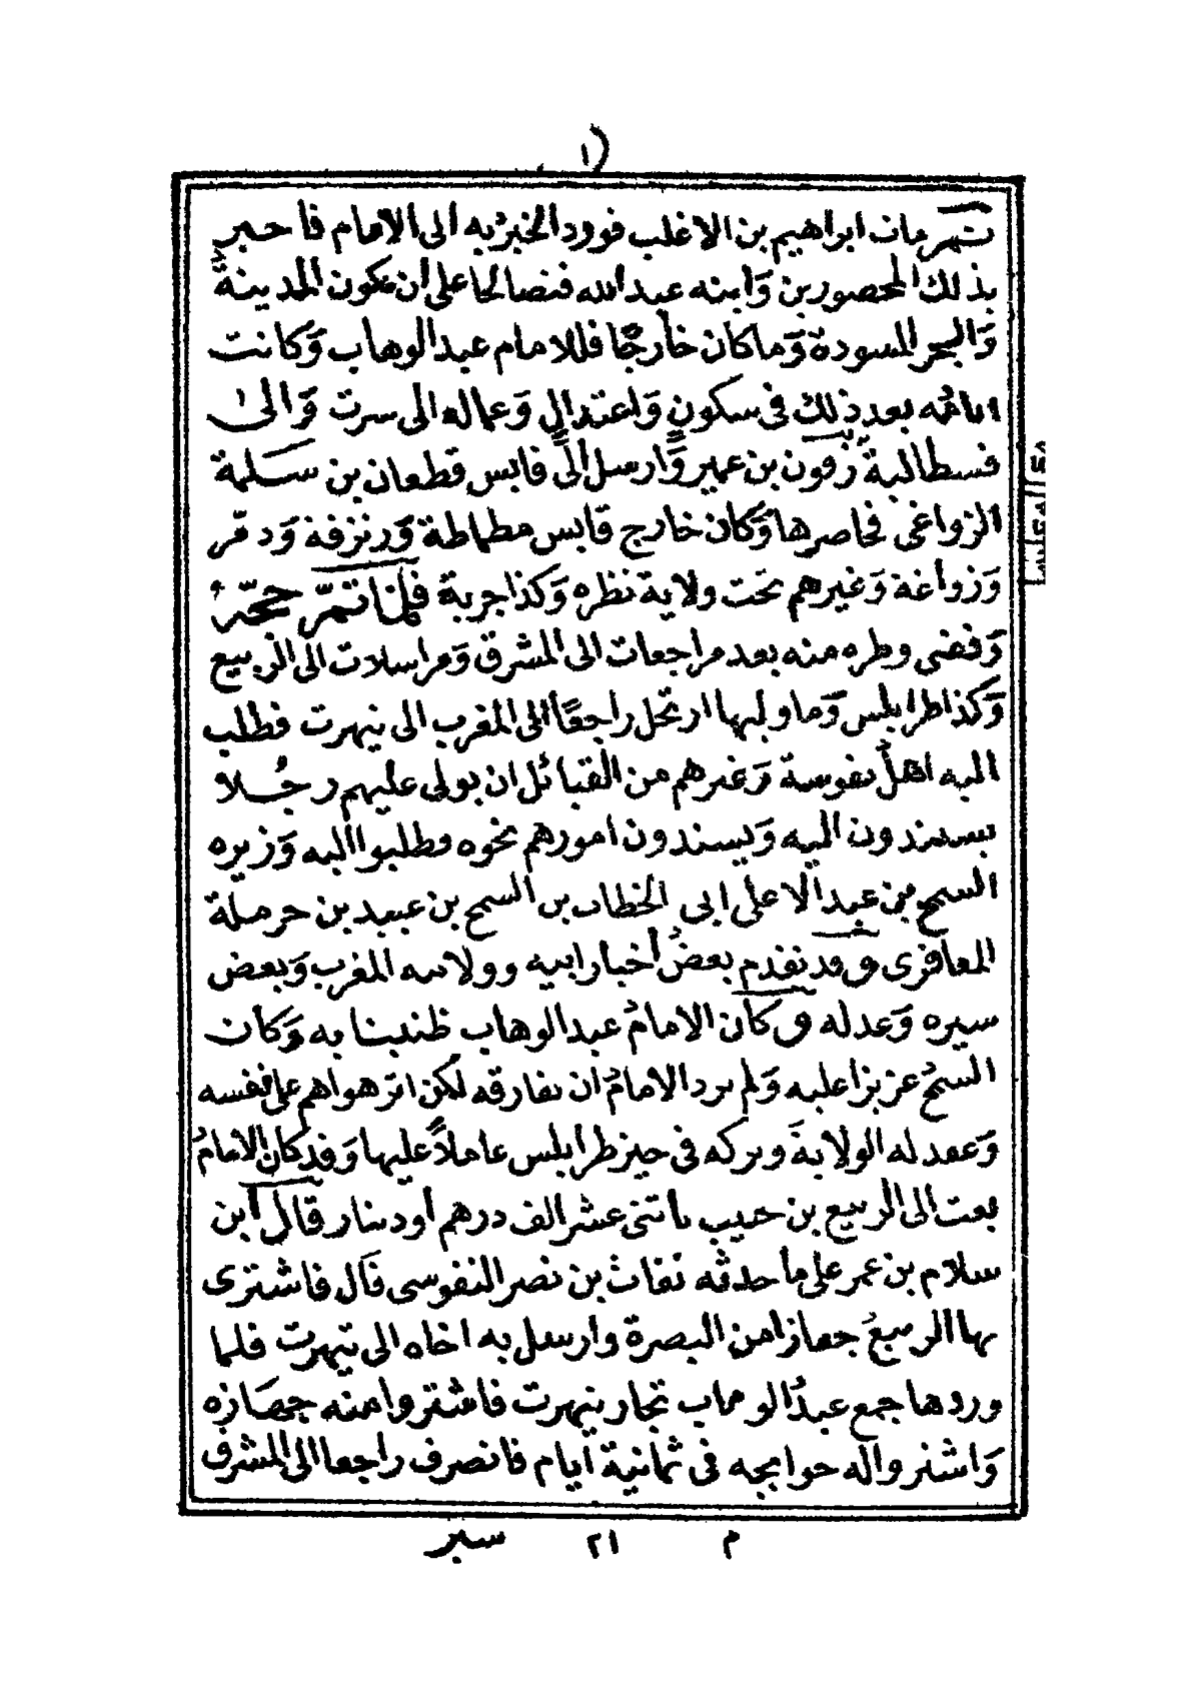 ثم مات ابراهيم بن الاغلب فورد الخبر به الى الامام فاخبر
بذلك المحصورين وَابنه عبد الله فتصالحا على ان يكون المدينةُ
وَالبحر للمسودة وَما كان خارجًا فللامام عبد الوهاب وَكانت
ايامُه بعد ذلك في سكون وَاعتدال وَعماله الى سرت وَالى
قسطالية زقون بن عمير وَارسل الى قابس قطعان بن سلمة
الزواغى فحاصرها وَكان خارج قابس مطماطة وَزنزفة وَدمّر
وَزواغة وَغيرهم تحت ولاية نظره وَكذا جربة فلمّا تمّ حجّه
وَقضى وطره منه بعد مراجعات الى المشرق وَمراسلات الى الربيع
وَكذا طرابلس وَما وليها ارتحل راجعًا الى المغرب الى تيهرت فطلب
اليه اهلُ نفوسة وَغيرهم من القبائل ان يولى عليهم رجُلا
يستندون اليه وَيسندون امورهم نحوه وطلبوا اليه وَزيره
السمح بن عبد الاعلى ابى الخطاب بن السمح بن عبيد بن حرملة
المعافرى وقد تقدم بعضُ أخبار ابيه وولايته المغرب وَبعض
سيره وَعدله وكان الامامُ عبد الوهاب ظنينا به وَكان
السمحُ عزيزا عليه وَلم يرد الامامُ ان يفارقه لكن اثر هواهم على نفسه
وَعقد له الولايةَ وتركه في حيز طرابلس عاملاً عليها وَقد كان الامامُ
بعث الى الربيع بن حبيب باثنى عشر الف درهم أو دينار قال ابن
سلام بن عمر على ما حدثه نفاث بن نصر النفوسى قَال فاشترى
بها الربيعُ جهازا من البصرة وارسل به اخاه الى تيهرت فلما
وردها جمع عبدُ الوهاب تجار تيهرت فاشتروا منه جهَازه
وَاشتروا له حوايجه في ثمانية أيام فانصرف راجعا الى المشرق
م ٢١ سير